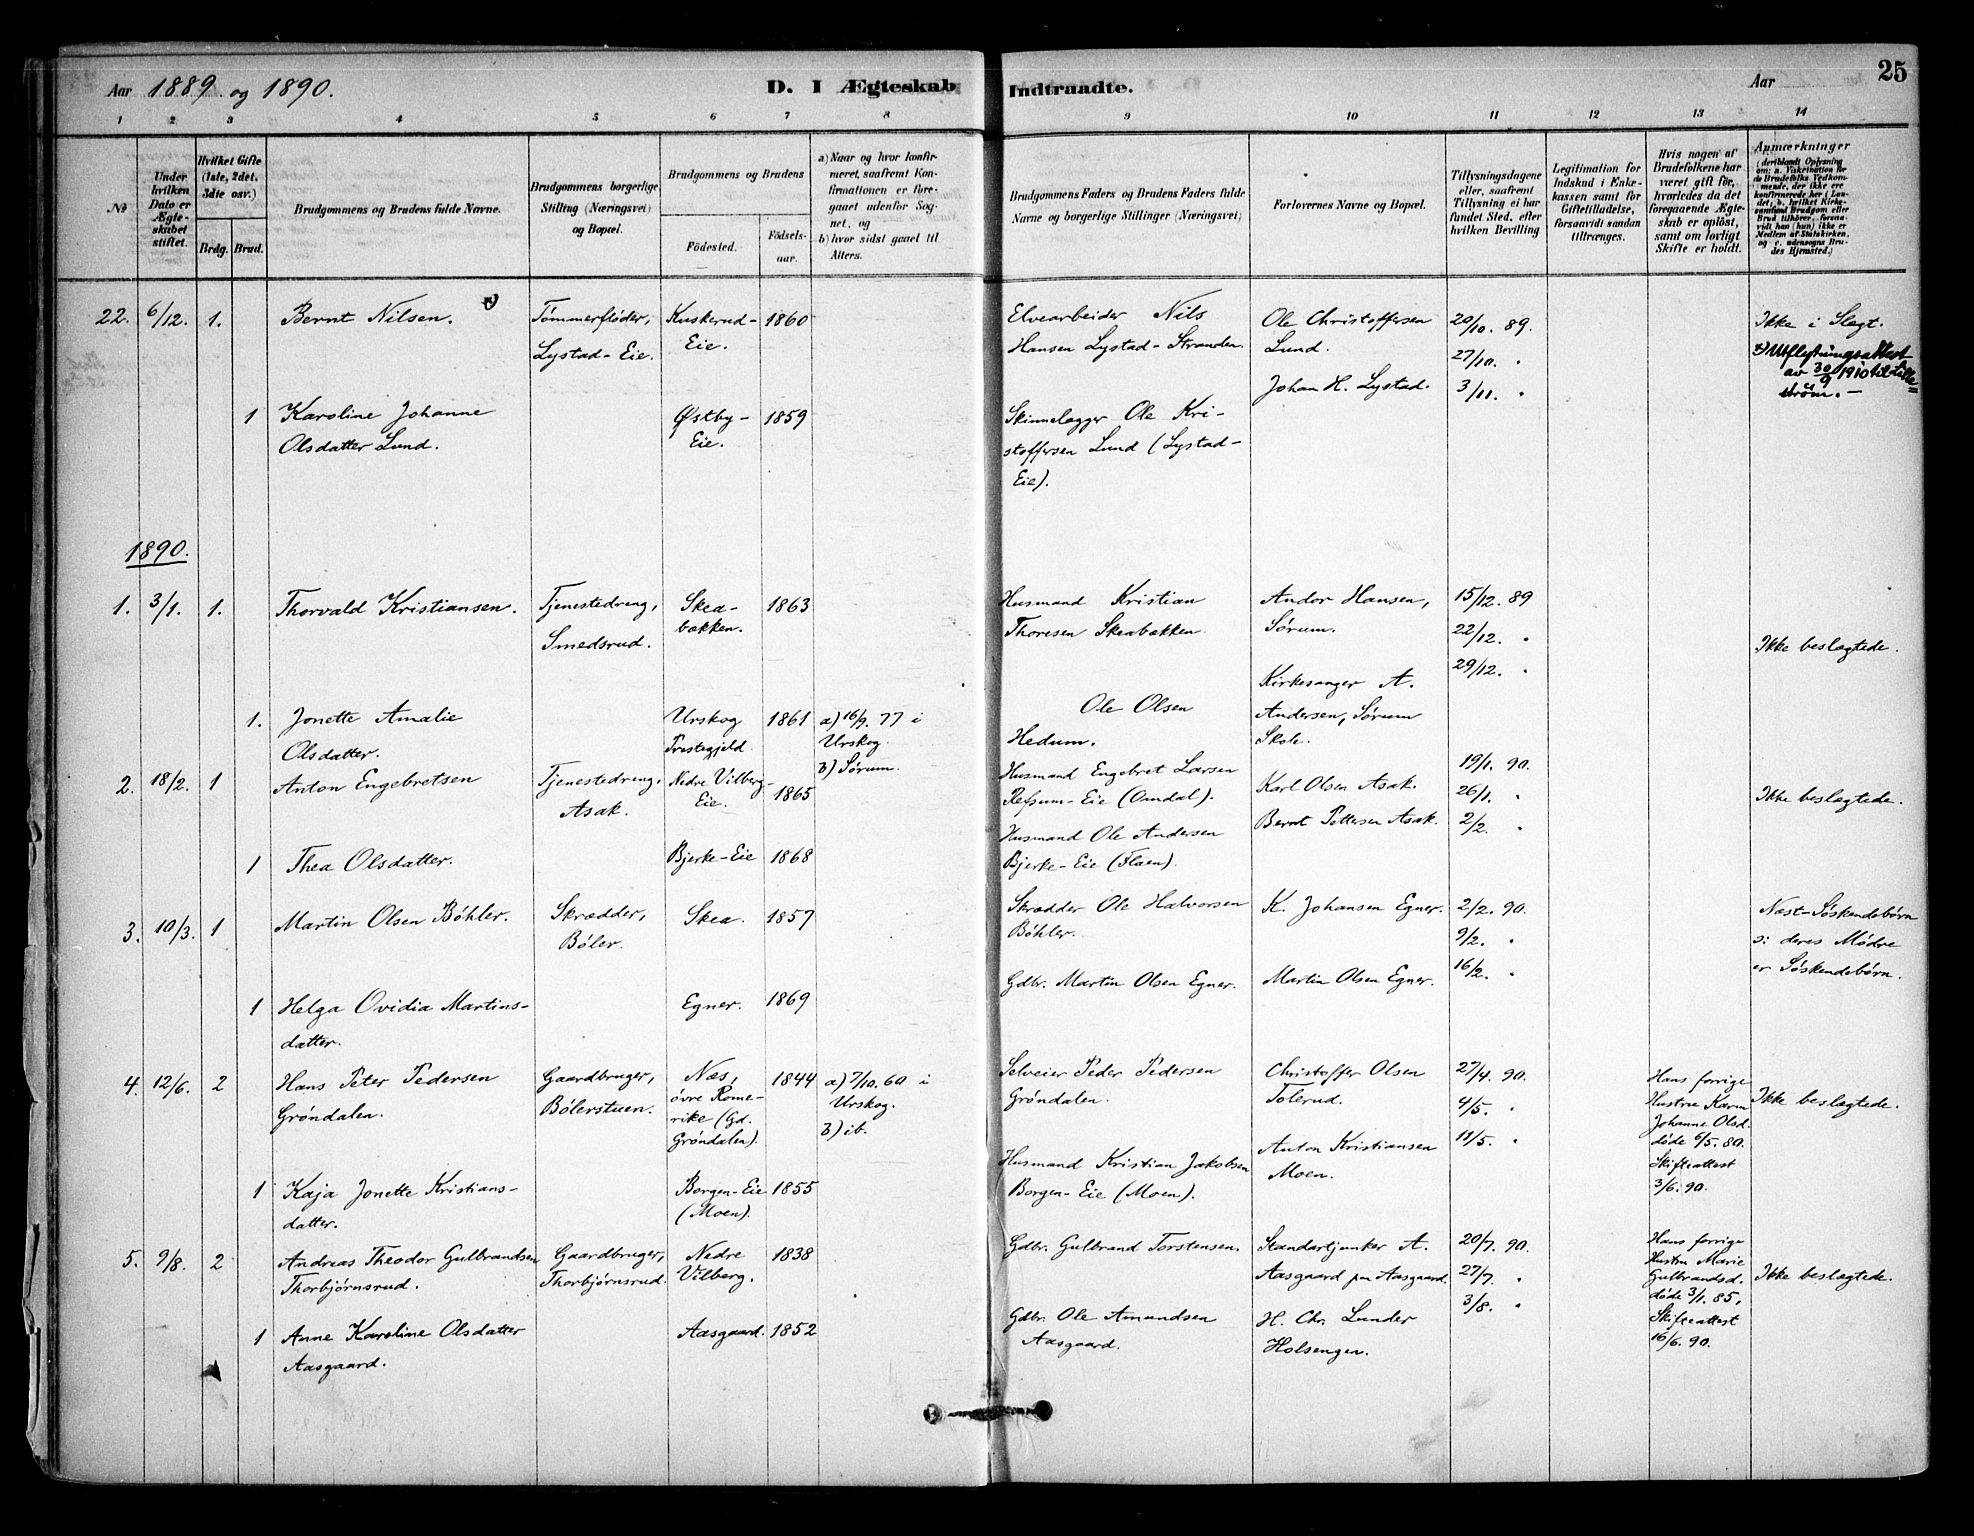 Aar 1889 og 1890.
D. I Ægteskab Indtraadte.
Aar
25
1 2 3 4 5 6 7 8 9 10 11 12 13 14
No
Under hvilken Dato er Ægteskabet stiftet.
Hvilket Gifte (1ste, 2det, 3die osv.)
Brdg. Brud.
Brudgommens og Brudens fulde Navne.
Brudgommens borgerlige Stilling (Næringsvei) og Bopæl.
Brudgommens og Brudens
Födested.
Födselsaar.
a) Naar og hvor konfirmeret, saafremt Konfirmationen er foregaaet udenfor Sognet, og
b) hvor sidst gaaet til Alters.
Brudgommens Faders og Brudens Faders fulde Navne og borgerlige Stillinger (Næringsvei)
Forlovernes Navne og Bopæl.
Tillysningsdagene eller, saafremt Tillysning ei har fundet Sted, efter hvilken Bevilling
Legitimation for Indskud i Enkekassen samt for Giftetilladelse, forsaavidt saadan tiltrænges.
Hvis nogen af Brudefolkene har været gift før, hvorledes da det foregaaende Ægteskab er oplöst, samt om lovligt Skifte er holdt.
Anmærkninger
22. 6/12. 1. Bernt Nilsen. x)
Tömmerflöder,
Lystad-Eie.
Kuskerud-
Eie.
1860
Elvearbeider Nils
Hansen Lystad-Stranden.
Ole Christoffersen
Lund.
Johan H. Lystad.
20/10. 89.
27/10. "
3/11. "
Ikke i Slegt.
x) Utflytningsattest
av 30/9 1910 til Lille-
ström. -
1 Karoline Johanne
Olsdatter Lund.
Østby-
Eie.
1859
Skinnelægger Ole Kri-
stoffersen Lund (Lystad-
Eie).
1890.
1. 3/1. 1. Thorvald Kristiansen.
Tjenestedreng,
Smedsrud.
Skea-
bækken.
1863
Husmand Kristian
Thoresen Skeabækken.
Andor Hansen,
Sörum.
Kirkesanger A.
Andersen, Sörum
Skole.
15/12. 89
22/12. "
29/12. "
Ikke beslegtede.
1. Jonette Amalie
Olsdatter.
Urskog
Prestegjeld.
1861
a) 16/9. 77 i
Urskog.
b) Sörum.
Ole Olsen
Hedum.
2. 18/2. 1 Anton Engebretsen
Tjenestedreng,
Asak.
Nedre Vilberg-
Eie.
1865
Husmand Engebret Larsen
Refsum-Eie (Omdal).
Karl Olsen Asak.
Bernt Pettersen Asak.
19/1. 90.
26/1. "
2/2. "
Ikke beslegtede.
1 Thea Olsdatter.
Bjerke-Eie
1868
Husmand Ole Andersen
Bjerke-Eie (Flaen).
3. 10/3. 1 Martin Olsen Böhler.
Skrædder,
Böler.
Skea.
1857
Skrædder Ole Halvorsen
Böhler.
K. Johansen Egner.
Martin Olsen Egner.
2/2. 90.
9/2. "
16/2. "
Næst-Söskendebörn
ɔ: deres Mödre
er Söskendebörn.
1 Helga Ovidia Martins-
datter.
Egner.
1869
Gdbr. Martin Olsen Egner.
4. 12/6. 2 Hans Peter Pedersen
Gröndalen.
Gaardbruger,
Bölerstuen.
Næs,
övre Rome-
rike (Gd.
Gröndalen).
1844
a) 7/10. 60 i
Urskog.
b) ib.
Selveier Peder Pedersen
Gröndalen.
Christoffer Olsen
Tolerud.
Anton Kristiansen
Moen.
27/4. 90.
4/5. "
11/5. "
Hans forrige
Hustru Karen
Johanne Olsd.
döde 6/5. 80.
Skifteattest
3/6. 90.
Ikke beslegtede.
1 Kaja Jonette Kristians-
datter.
Borgen-Eie
(Moen).
1855
Husmand Kristian Jakobsen
Borgen-Eie (Moen).
5. 9/8. 2 Andreas Theodor Gulbrandsen
Thorbjörnsrud.
Gaardbruger,
Thorbjörnsrud.
Nedre
Vilberg.
1838
Gdbr. Gulbrand Torstensen.
Standartjunker A.
Aasgaard paa Aasgaard.
H. Chr. Lunder
Holsengen.
20/7. 90.
27/7. "
3/8. "
Hans forrige
Hustru Marie
Gulbrandsd.
döde 3/1. 85,
Skifteattest
16/6. 90.
Ikke beslegtede.
1 Anne Karoline Olsdatter
Aasgaard.
Aasgaard.
1852
Gdbr. Ole Amundsen
Aasgaard.